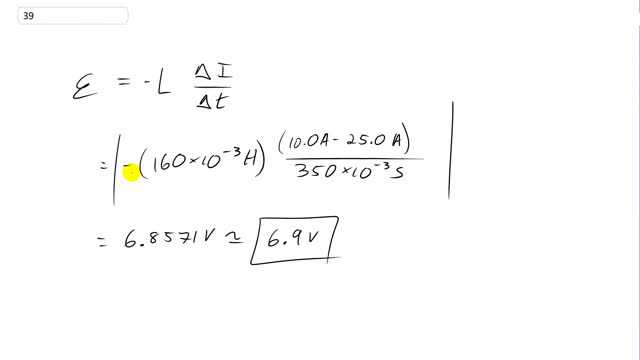 39
ε = -L ΔI/Δt
= |-(160×10⁻³H) (10.0A - 25.0A)/350×10⁻³s|
= 6.8571V ≃ 6.9V